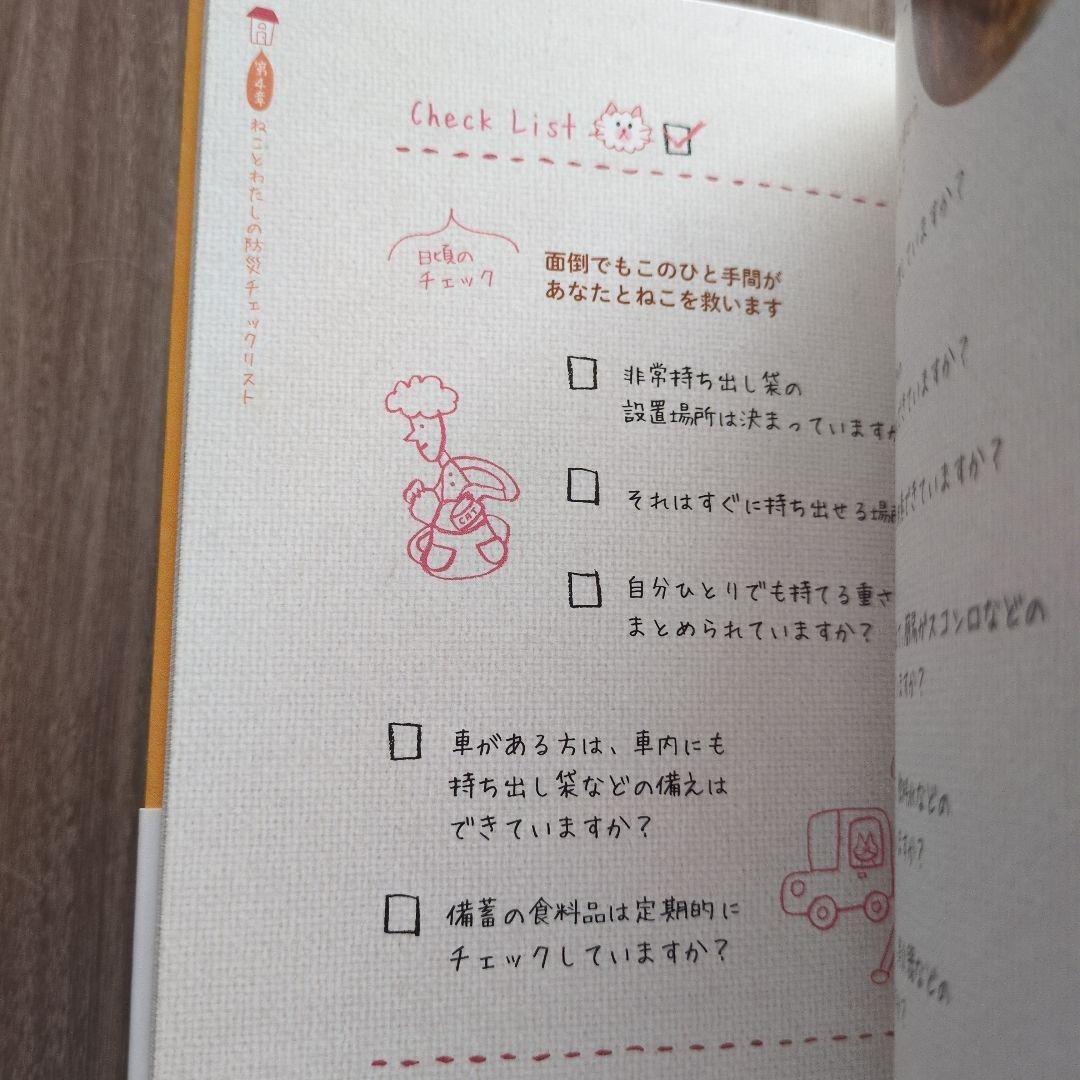 第4章
ねことわたしの防災チェックリスト
Check List
日頃の
チェック
面倒でもこのひと手間が
あなたとねこを救います
非常持ち出し袋の
設置場所は決まっていますか
それはすぐに持ち出せる場所
自分ひとりでも持てる重さ
まとめられていますか?
CAT
車がある方は、車内にも
持ち出し袋などの備えは
できていますか?
備蓄の食料品は定期的に
チェックしていますか?
いますか?
できていますか?
できていますか?
スコンロなどの
ますか?
などの
ますか?
などの